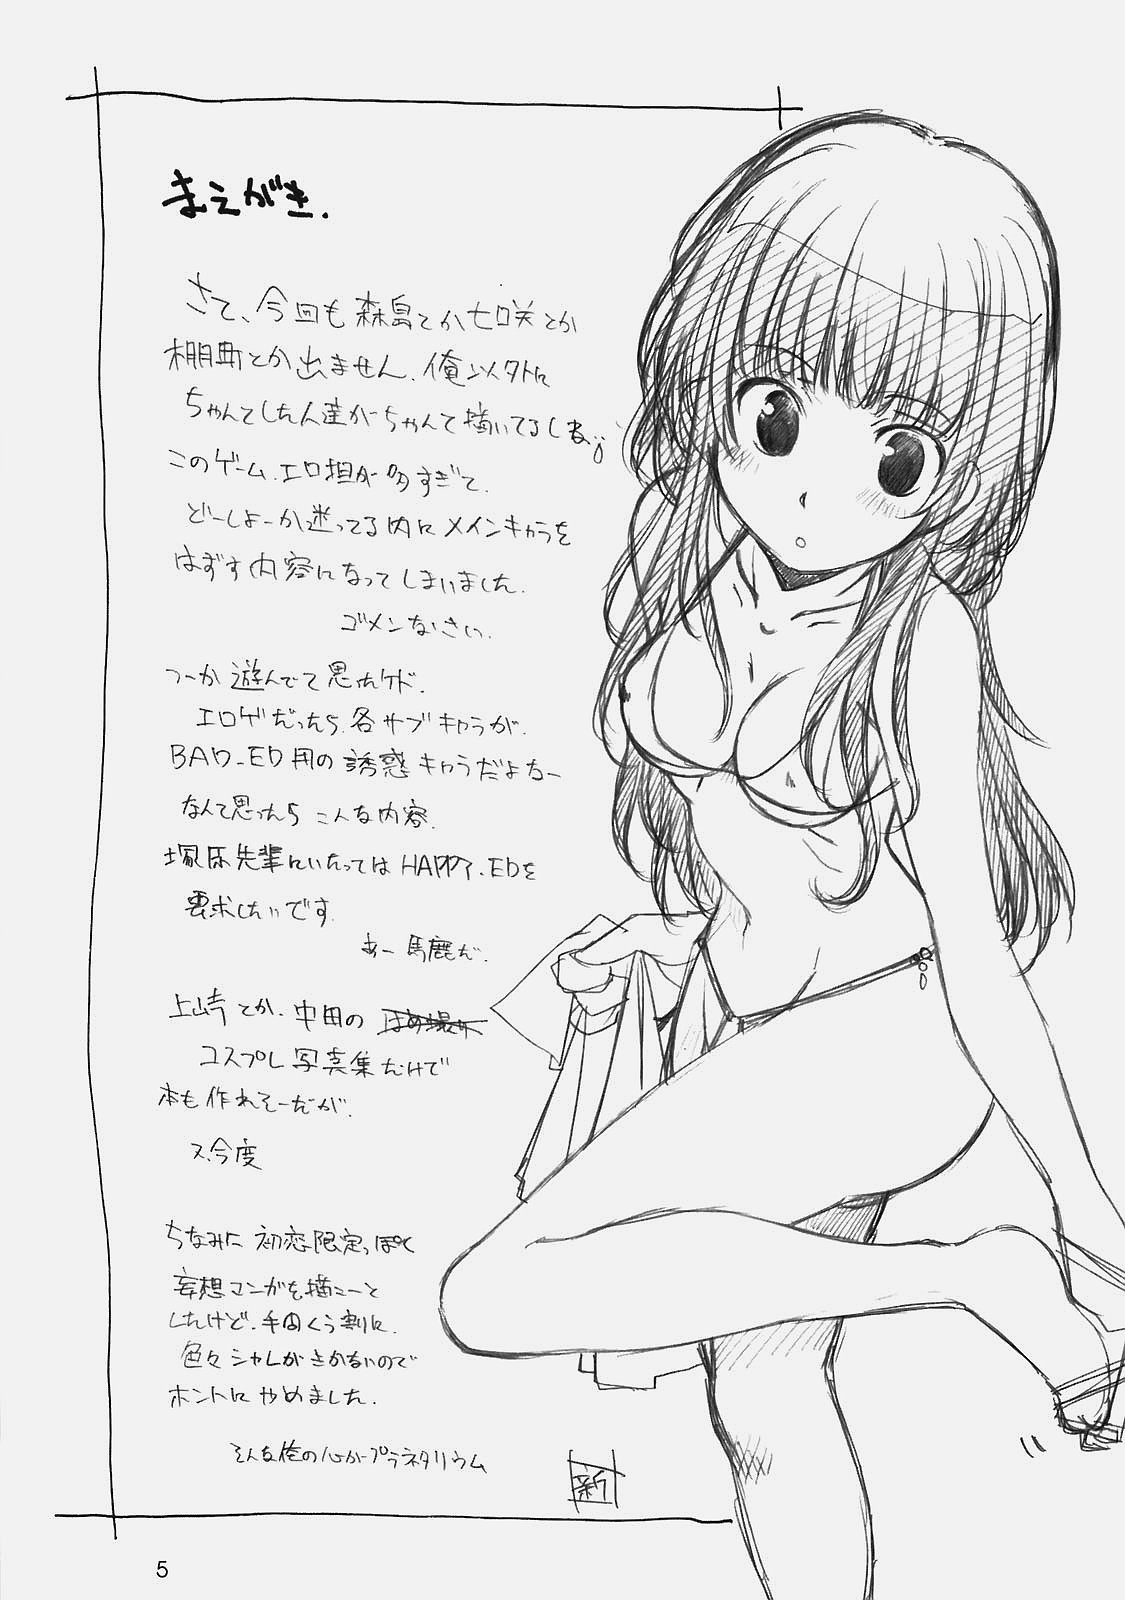 まえがき.
さて、今回も森島とか七咲とか
棚町とか出ません.俺以外に
ちゃんとした人達がちゃんと描いてるしね。
このゲーム.エロ担が多すぎて.
どーしよーか迷ってる内にメインキャラを
はずす内容になってしまいました.
ゴメンなさい.
つーか遊んでて思ったけど.
エロゲだったら.各サブキャラが.
BAD-ED用の誘惑キャラだよなー
なんて思ったらこんな内容.
塚原先輩にいたってはHAPPY.EDを
要求したいです.
あー馬鹿だ.
上崎とか.中田の
コスプレ写真集だけで
本も作れそーだが.
ス.今度
ちなみに初恋限定っぽく
妄想マンガを描こーと
したけど.手間くう割に.
色々シャレがきかないので
ホントにやめました.
そんな俺の心がプラネタリウム
新
5